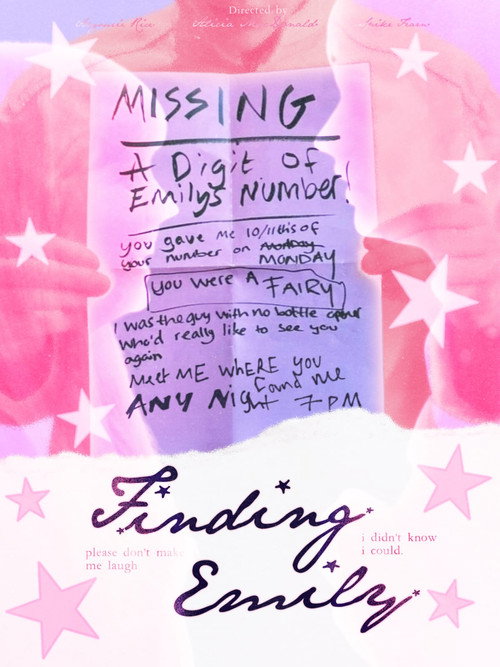 Directed by
MISSING
A Digit of
Emilys Number!
you gave me 10/11ths of
your number on Monday
MONDAY
you were A FAIRY
I was the guy with no bottle opener
who'd really like to see you
again
Meet ME WHERE YOU
found me
ANY Night 7PM
Finding
i didn't know
i could.
please don't make
me laugh
Emily